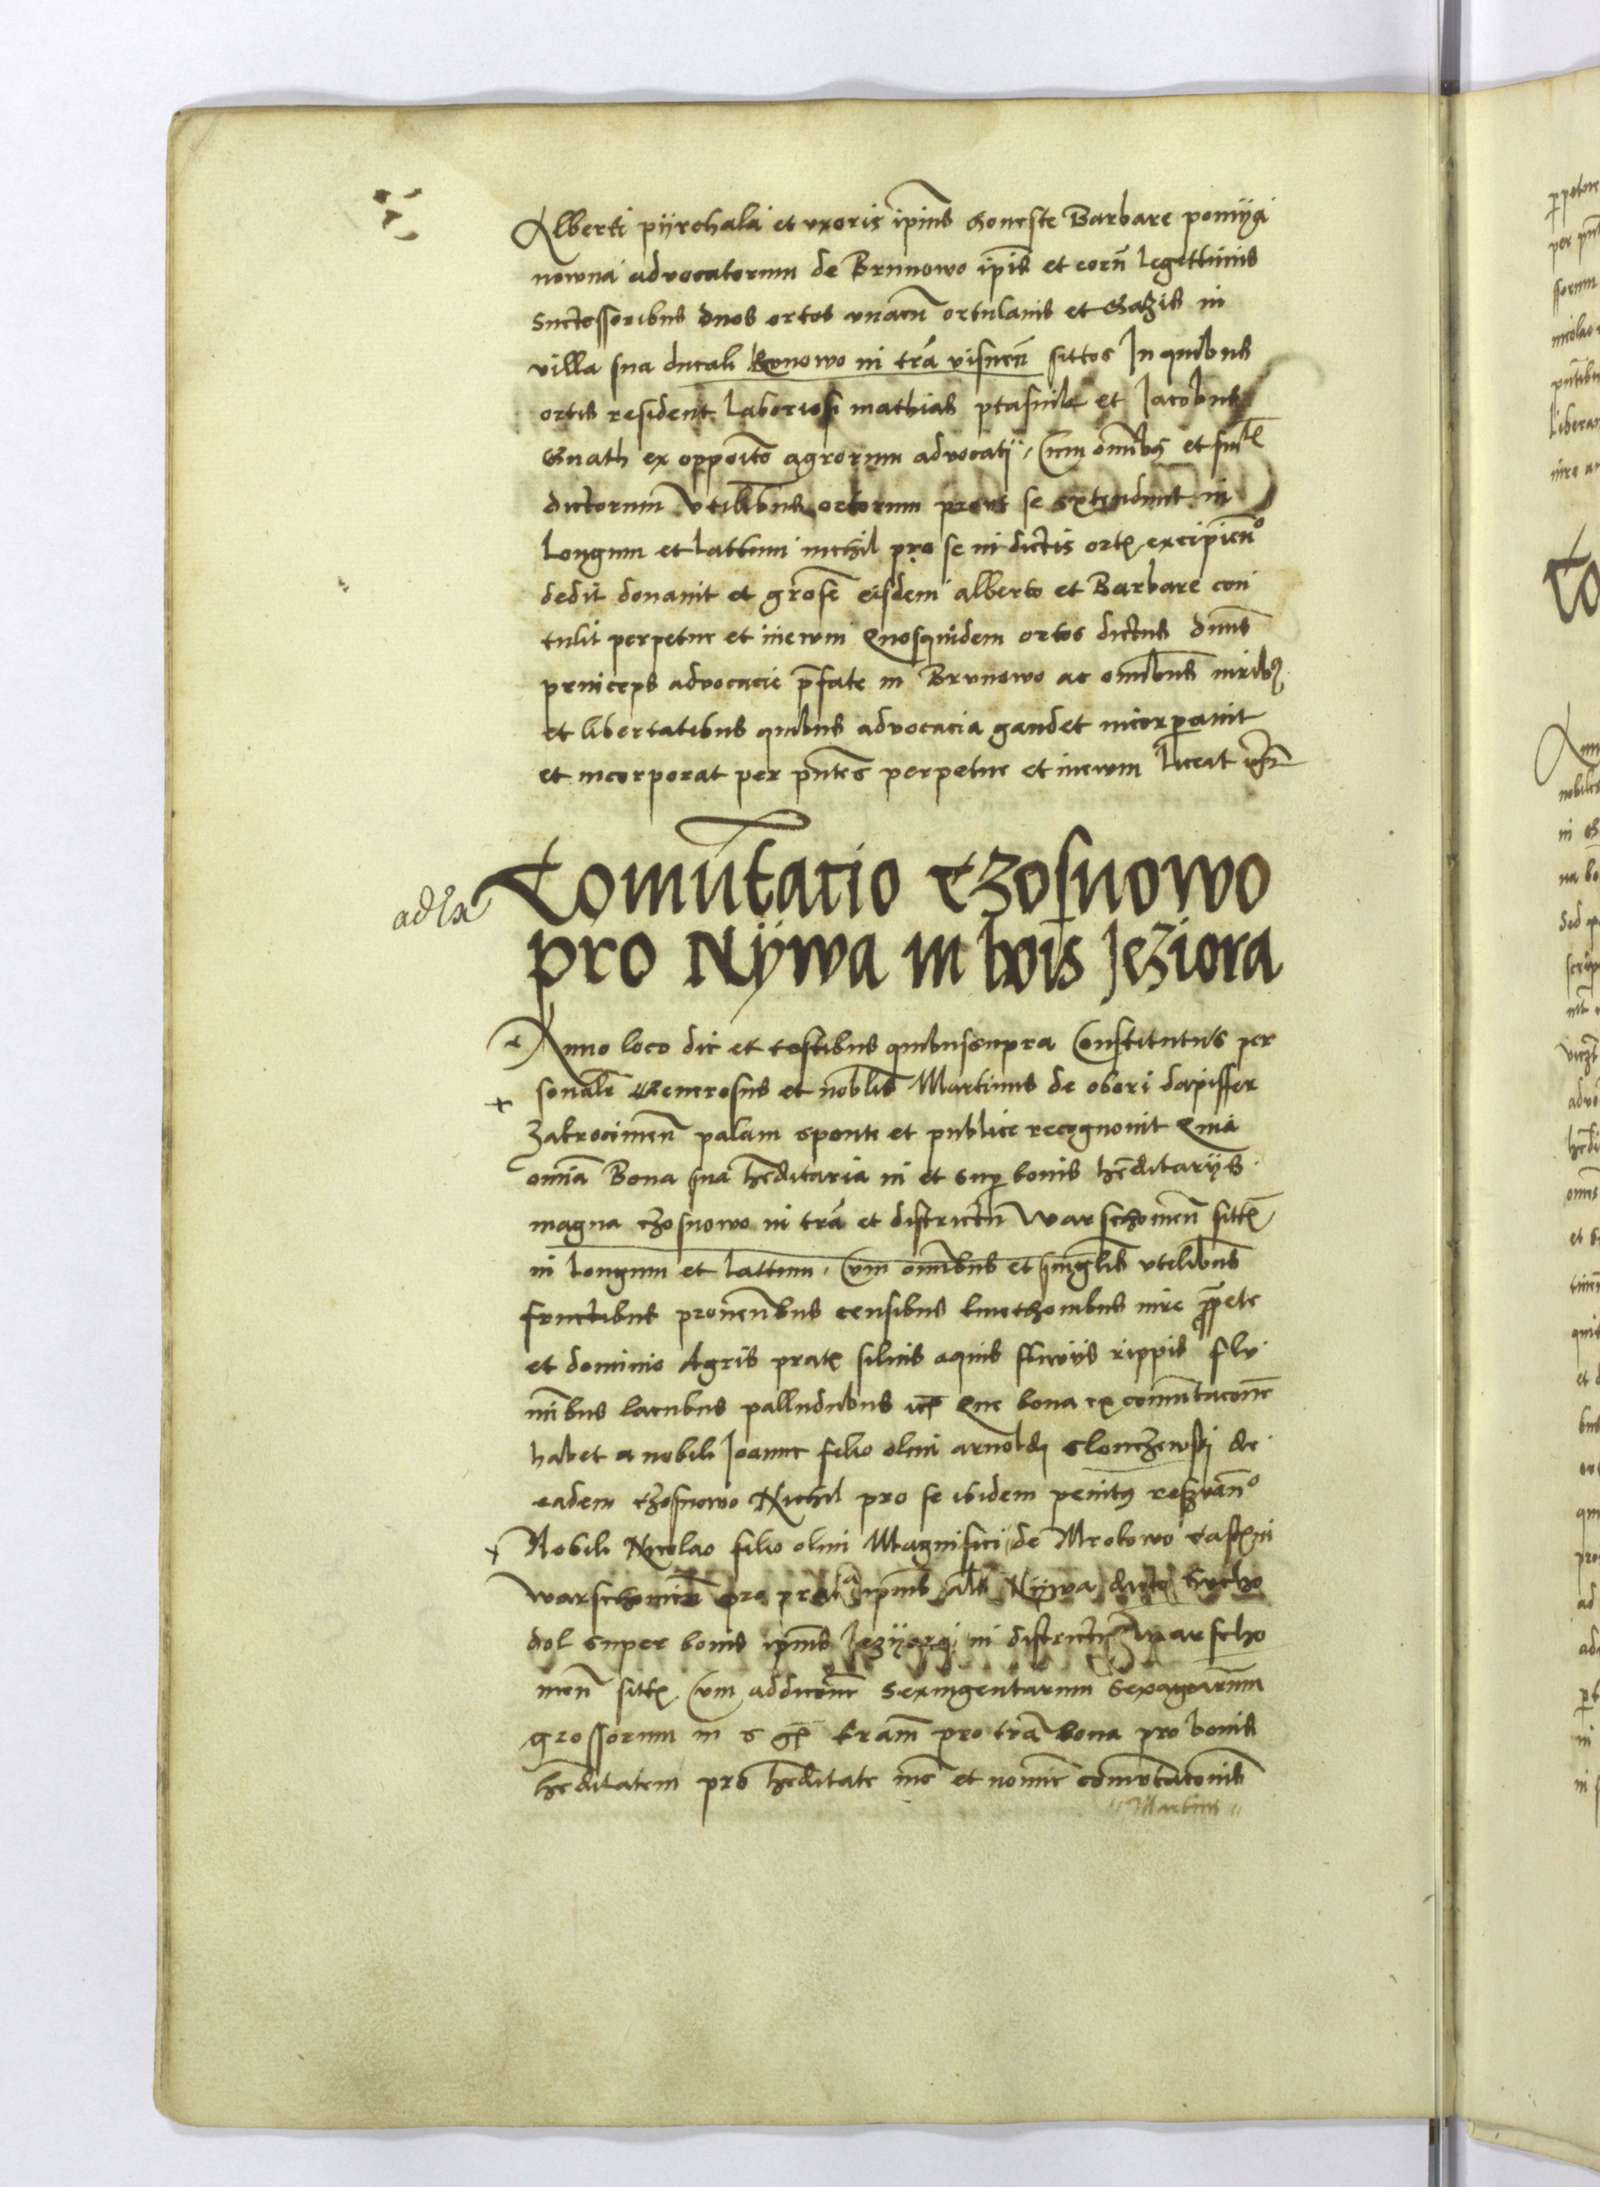 Alberti pyrchala et vxoris ipius honeste Barbare pomya
nowna advocatorum de Brunowo ipis et eorũ legettimis
Suctessoribus duos ortos vnacũ ortulanis et Gazis in
villa sua ducali Brunowo in trã visneñ sittos In quibus
ortis resident laboriosi mathias ptasnik et Jacobus
Gnath ex oppoito agrorum advocatij Cum omibus et
dictorum vtilibus ortorum prout se extendunt in
Longum et lattum nichil pro se in dictis ort excipieño
dedit donavit et grose eisdem alberto et Barbare con
tulit perpetue et inewm Quosquidem ortos dictus duns
princeps advocacie pfate in Brunowo ac omibus iuribus
et libertatibus quibus advocacia gaudet incorporavit
et incorporat per pntes perpetue et inewm liceat
Comutacio Czosnowo
pro Nÿwa in bois Jeziora
Anno loco die et testibus quibus supra Constitutus per
sonalr Generosus et noblis Martinus de obori dapiffer
Zakrocimeñ palam sponte et publice recognovit Quia
omia Bona sua heditaria in et sup bonis heditarijs
magna czosnowo in trã et districtu Warschowieñ sitt
in longum et lattum Cum omibus et singlis vtilibus
fructibus proveñbus censibus kmethonibus iure ppete
et dominio Agris prat silvis aquis fluvijs rippis flu
mibus lacubus palludubus etc Que bona ex comutacone
habet a nobili Joanne filio olim arnoldi Clonczewski de
eadem czosnowo Nichil pro se ibidem penitus resvano
Nobili Nicolao filio olim Magnifici de Mrokowo castlni
Warschowieñ pro prata ipius als Nijwa dicto Sucho
dol super bonis ipius Jezyora in districtu Warscho
wieñ sitt Cum addicone Sexingentarum Sexagenarum
grossorum in s gr tram pro tra bona pro bonis
heditatem pro heditate iure et nomie comutaconis
Martinus